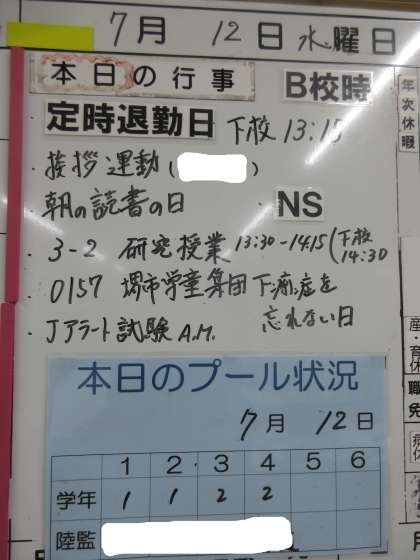 7月 12日 水曜日
本日の行事 B校時
定時退勤日 下校13:15
・挨拶運動( )
・朝の読書の日 NS
・3-2 研究授業 13:30-14:15(下校
14:30
・O157 堺市学童集団下痢症を
忘れない日
・Jアラート試験 A.M.
本日のプール状況
7月 12日
1 2 3 4 5 6
学年 1 1 2 2
陸監
年次休暇
産・育休
職
免
病
休